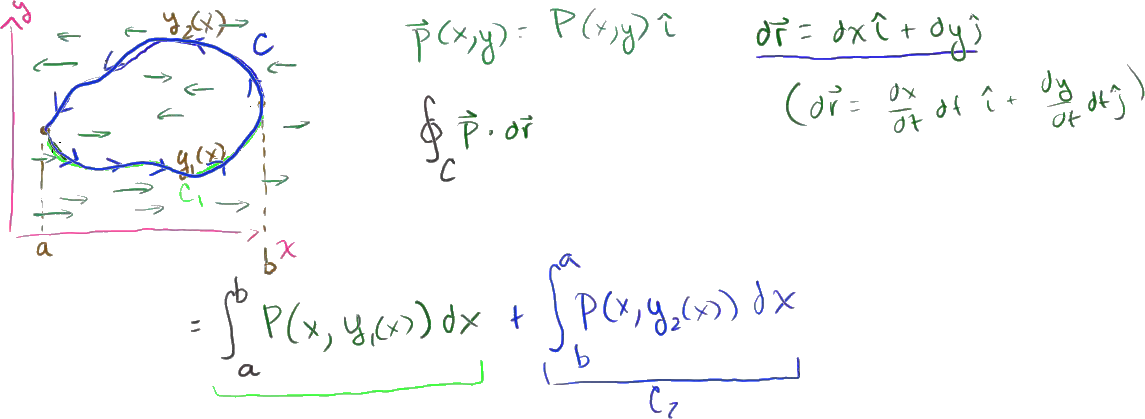 y
y₂(x)
C
y₁(x)
C₁
a
b
x
p⃗(x,y) = P(x,y) î
dr⃗ = dx î + dy ĵ
(dr⃗ = dx/dt dt î + dy/dt dt ĵ)
∮_C p⃗ · dr⃗
= ∫_a^b P(x, y₁(x)) dx + ∫_b^a P(x, y₂(x)) dx
C₂